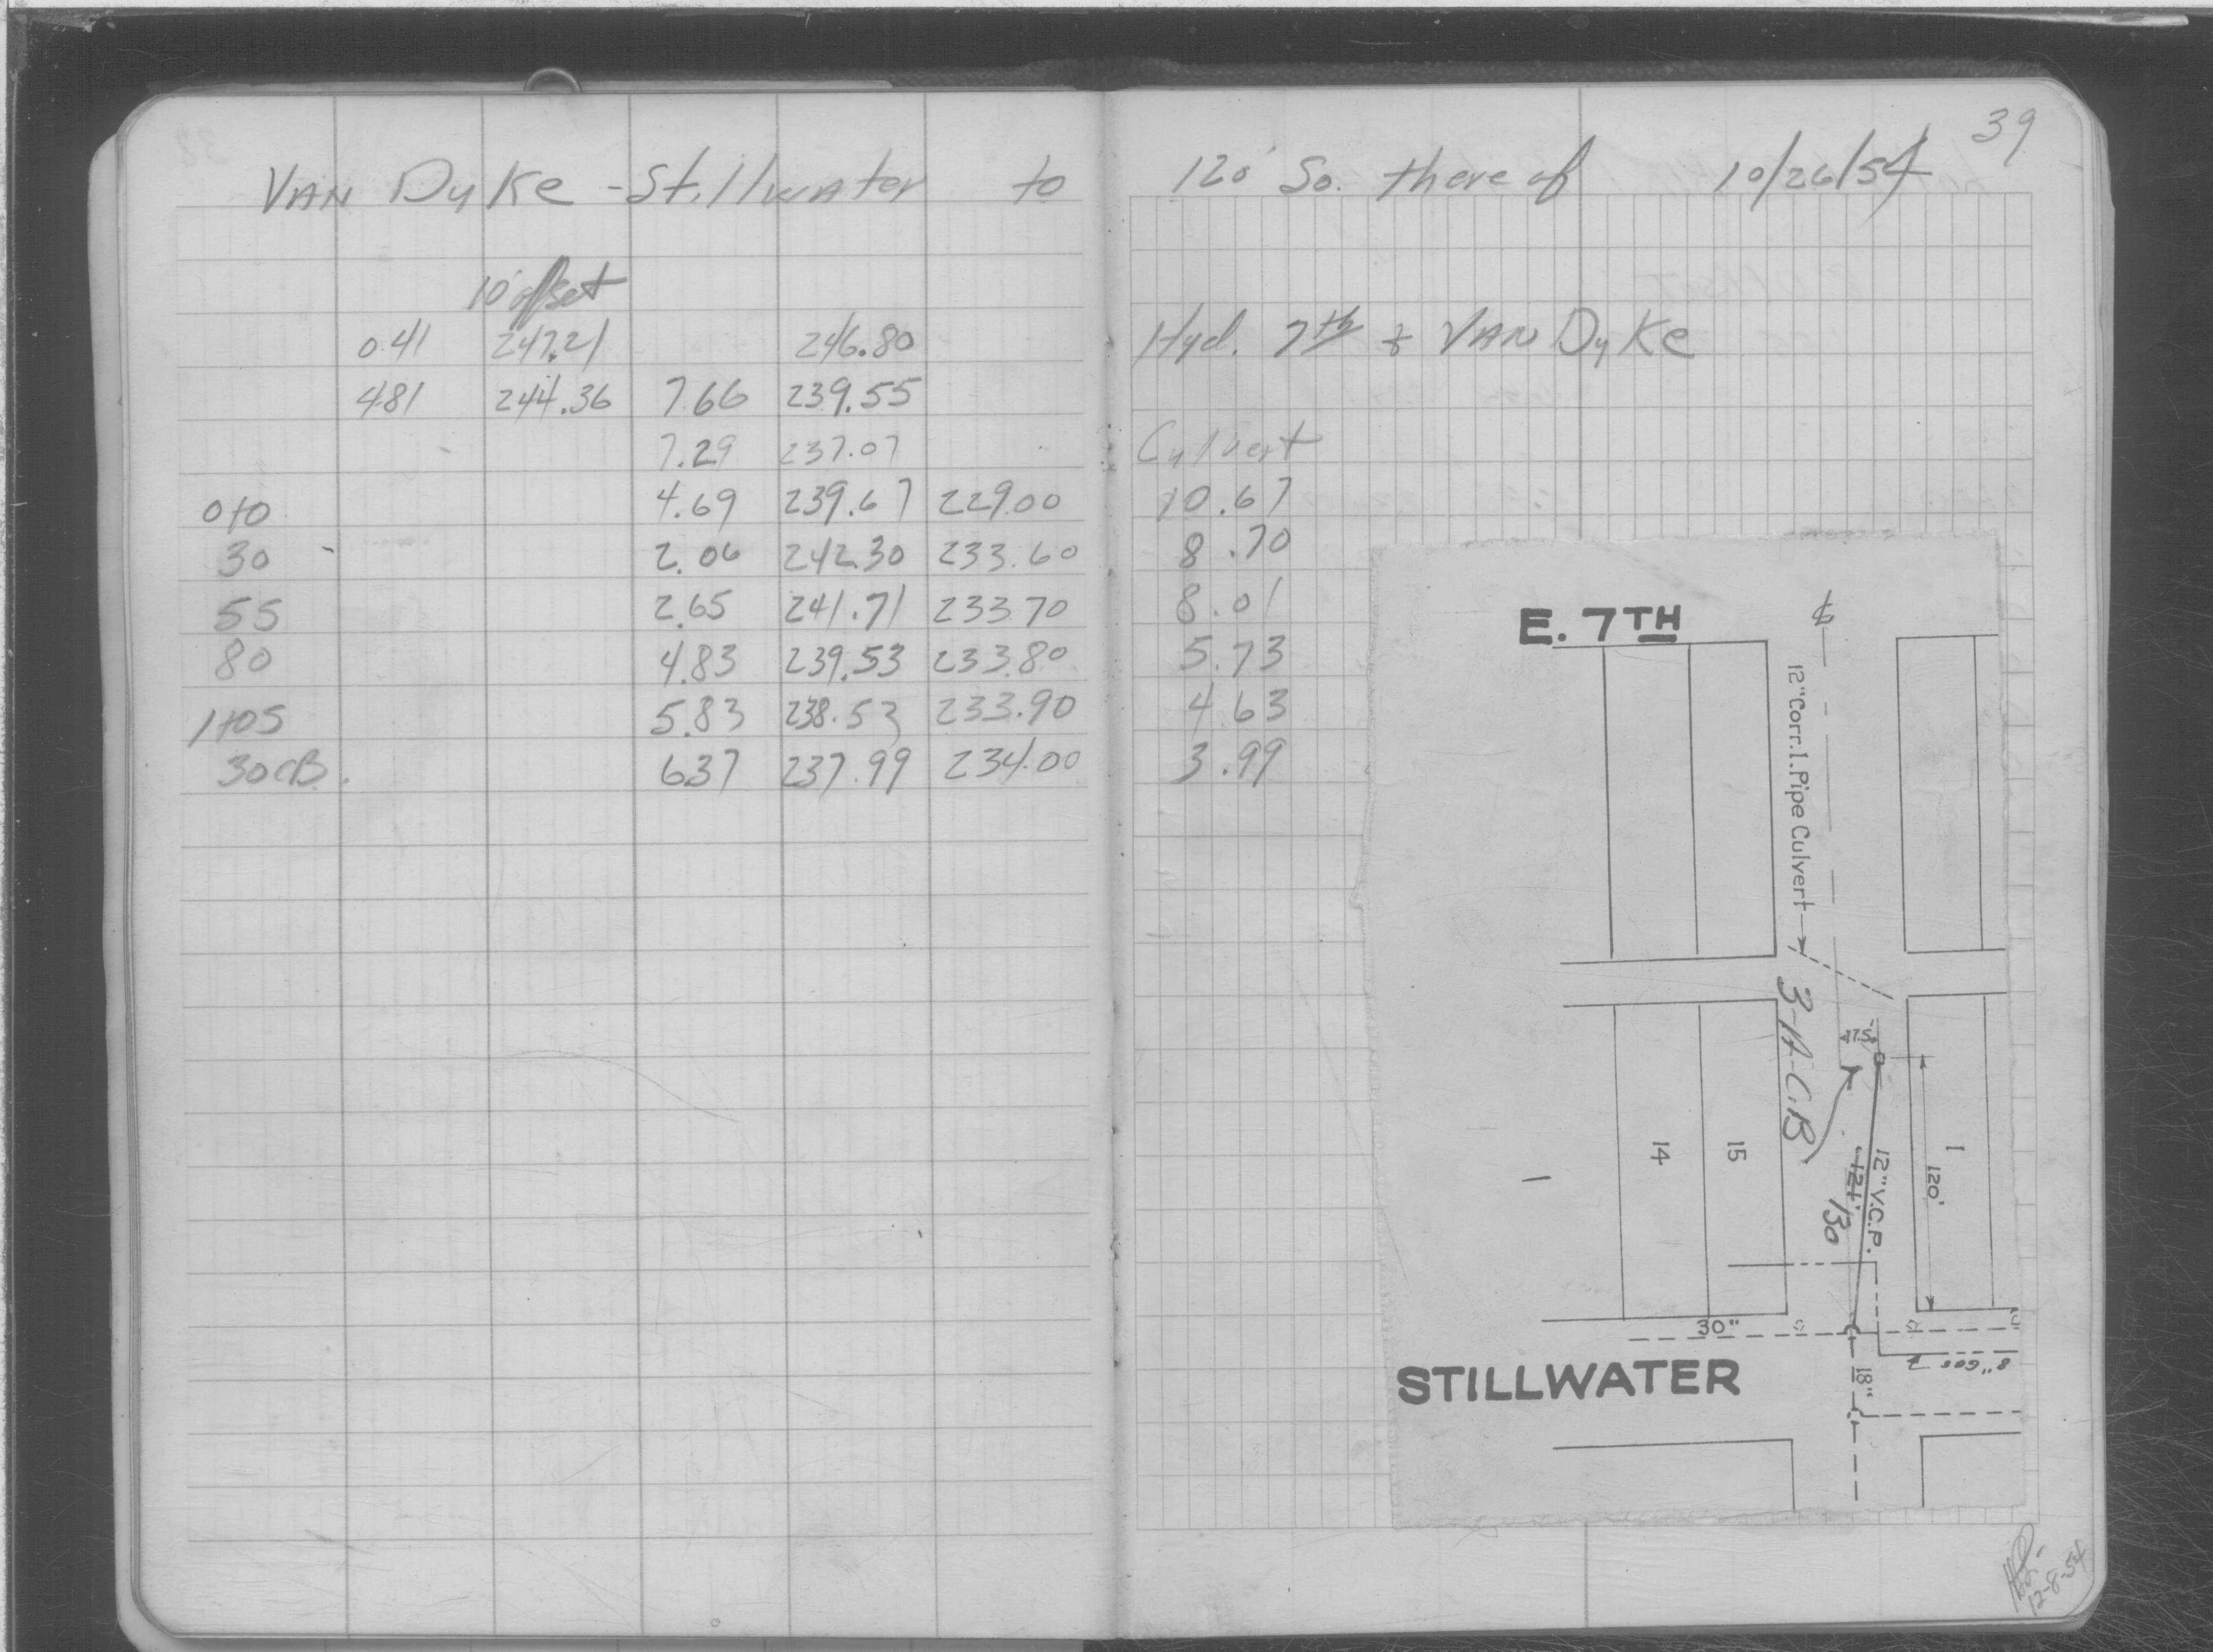 39
VAN DyKe - Stillwater to 120' So. there of 10/26/54
10' offset
0.41 247.21 246.80 Hyd. 7th & VAN DyKe
4.81 244.36 7.66 239.55
7.29 237.07 Culvert
0+0 4.69 239.67 229.00 10.67
30 2.06 242.30 233.60 8.70
55 2.65 241.71 233.70 8.01
80 4.83 239.53 233.80 5.73
1+05 5.83 238.53 233.90 4.63
30 CB. 6.37 237.99 234.00 3.99
E. 7TH
12" Corr. I. Pipe Culvert
3-A-C.B
17.5'
14
15
1
12" V.C.P.
121'
130
120'
30"
8" GAS
18"
STILLWATER
12-8-54